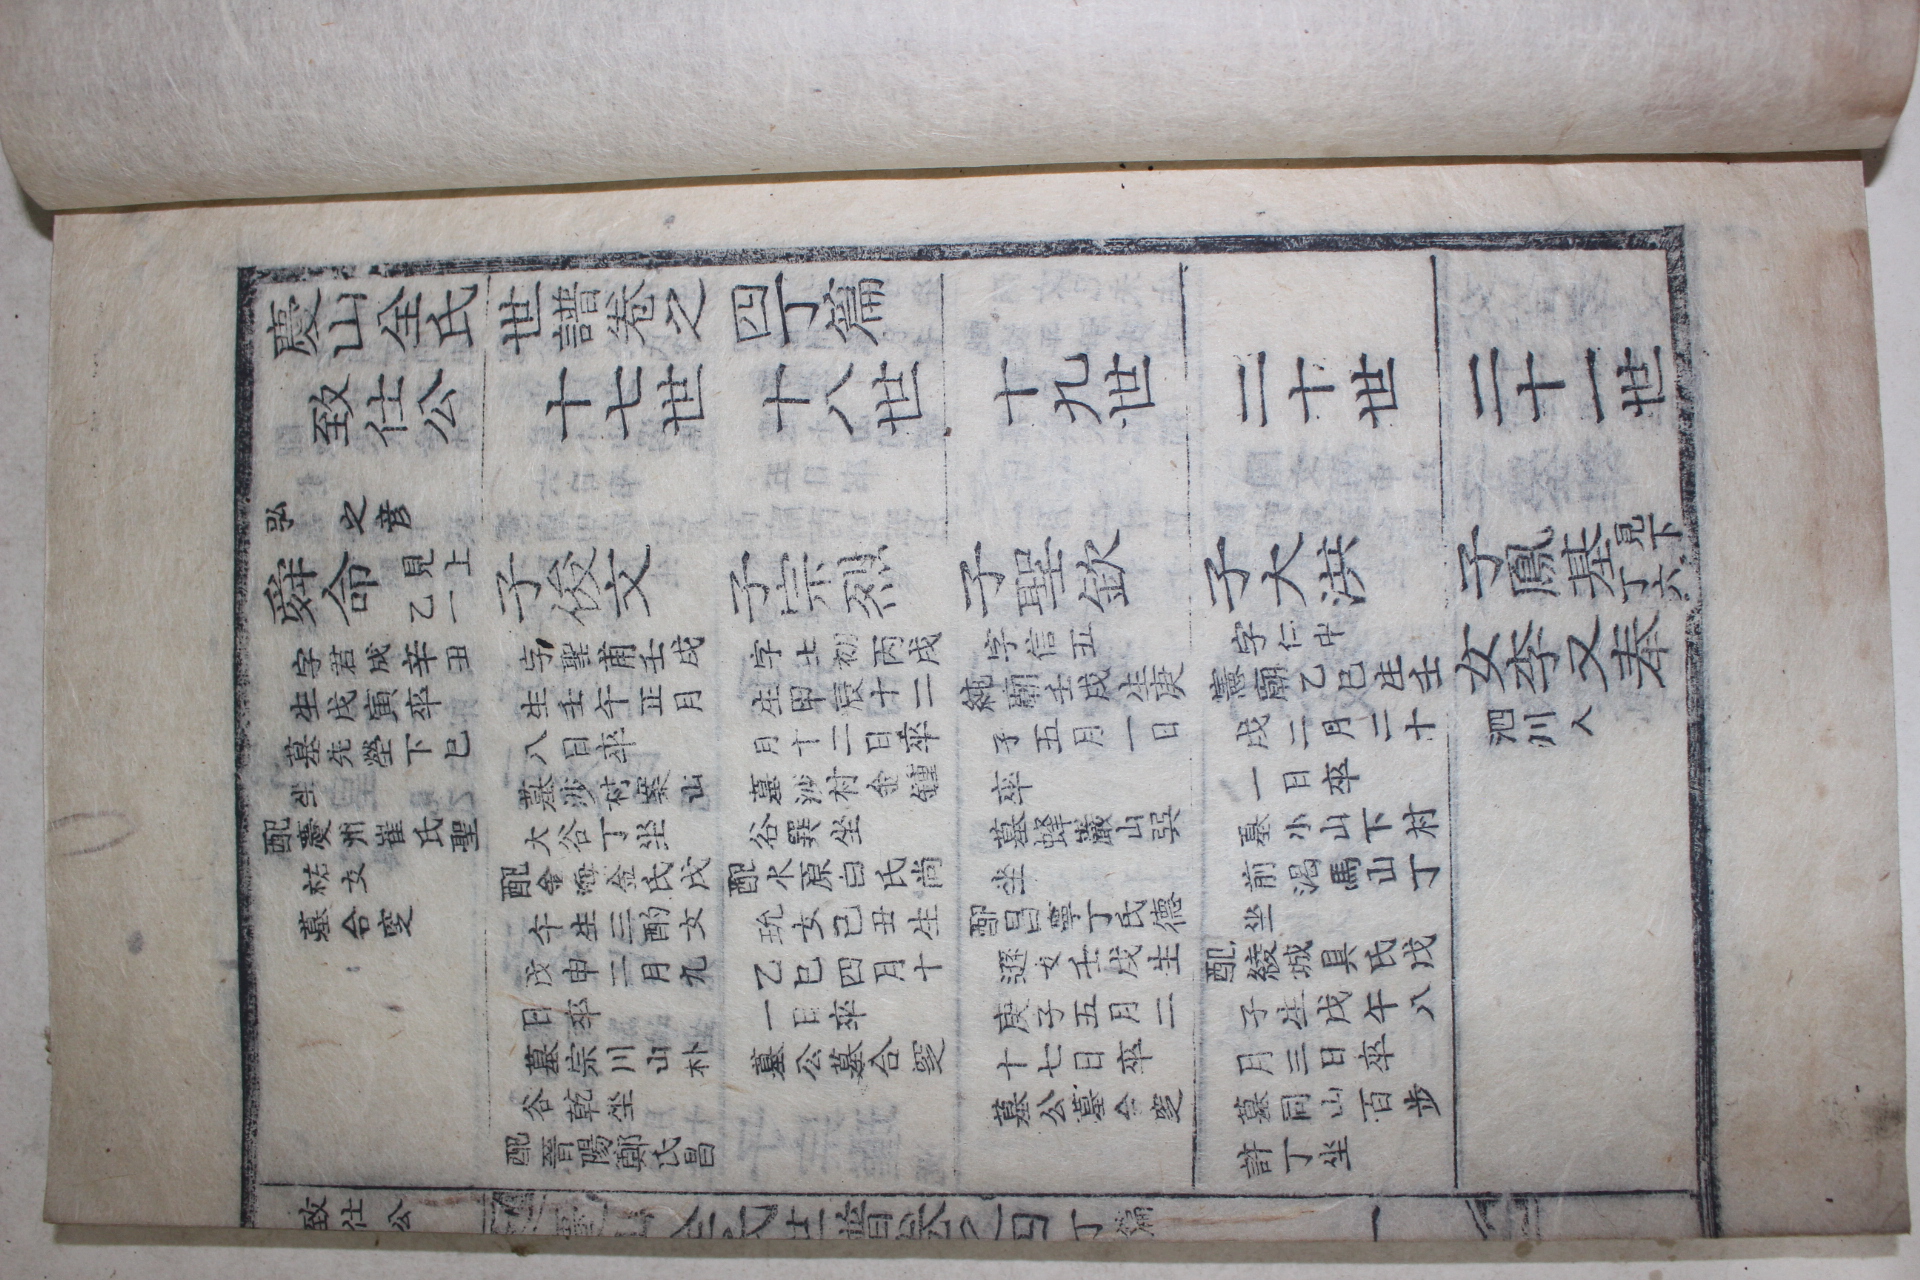 慶山全氏世譜卷之四丁篇
致仕公
十七世
十八世
十九世
二十世
二十一世
弘之彦
舜命
見上
乙一
字君成辛丑
生戊寅卒
墓先塋下巳
坐
配慶州崔氏聖
祐女
墓合窆
子俊文
字聖甫壬戌
生壬午正月
八日卒
墓沙村案山
大谷丁坐
配金海金氏戊
午生三酌女
戊申二月九
日卒
墓宗川山朴
谷乾坐
配晉陽鄭氏昌
子宗烈
字士初丙戌
生甲辰十二
月十二日卒
墓沙村金鍾
谷巽坐
配水原白氏尚
玧女己丑生
乙巳四月十
一日卒
墓公墓合窆
子聖欽
字信五
純廟壬戌生庚
子五月一日
卒
墓蜂巖山巽
坐
配昌寧丁氏德
遜女壬戌生
庚子五月二
十七日卒
墓公墓合窆
子大洪
字仁中
憲廟乙巳生壬
戌二月二十
一日卒
墓小山下村
前渴馬山丁
坐
配綾城具氏戊
子生戊午八
月三日卒
墓同山百步
許丁坐
子鳳基
見下
丁六
女李又奉
泗川人
致仕公
慶山全氏世譜卷之四丁篇
一